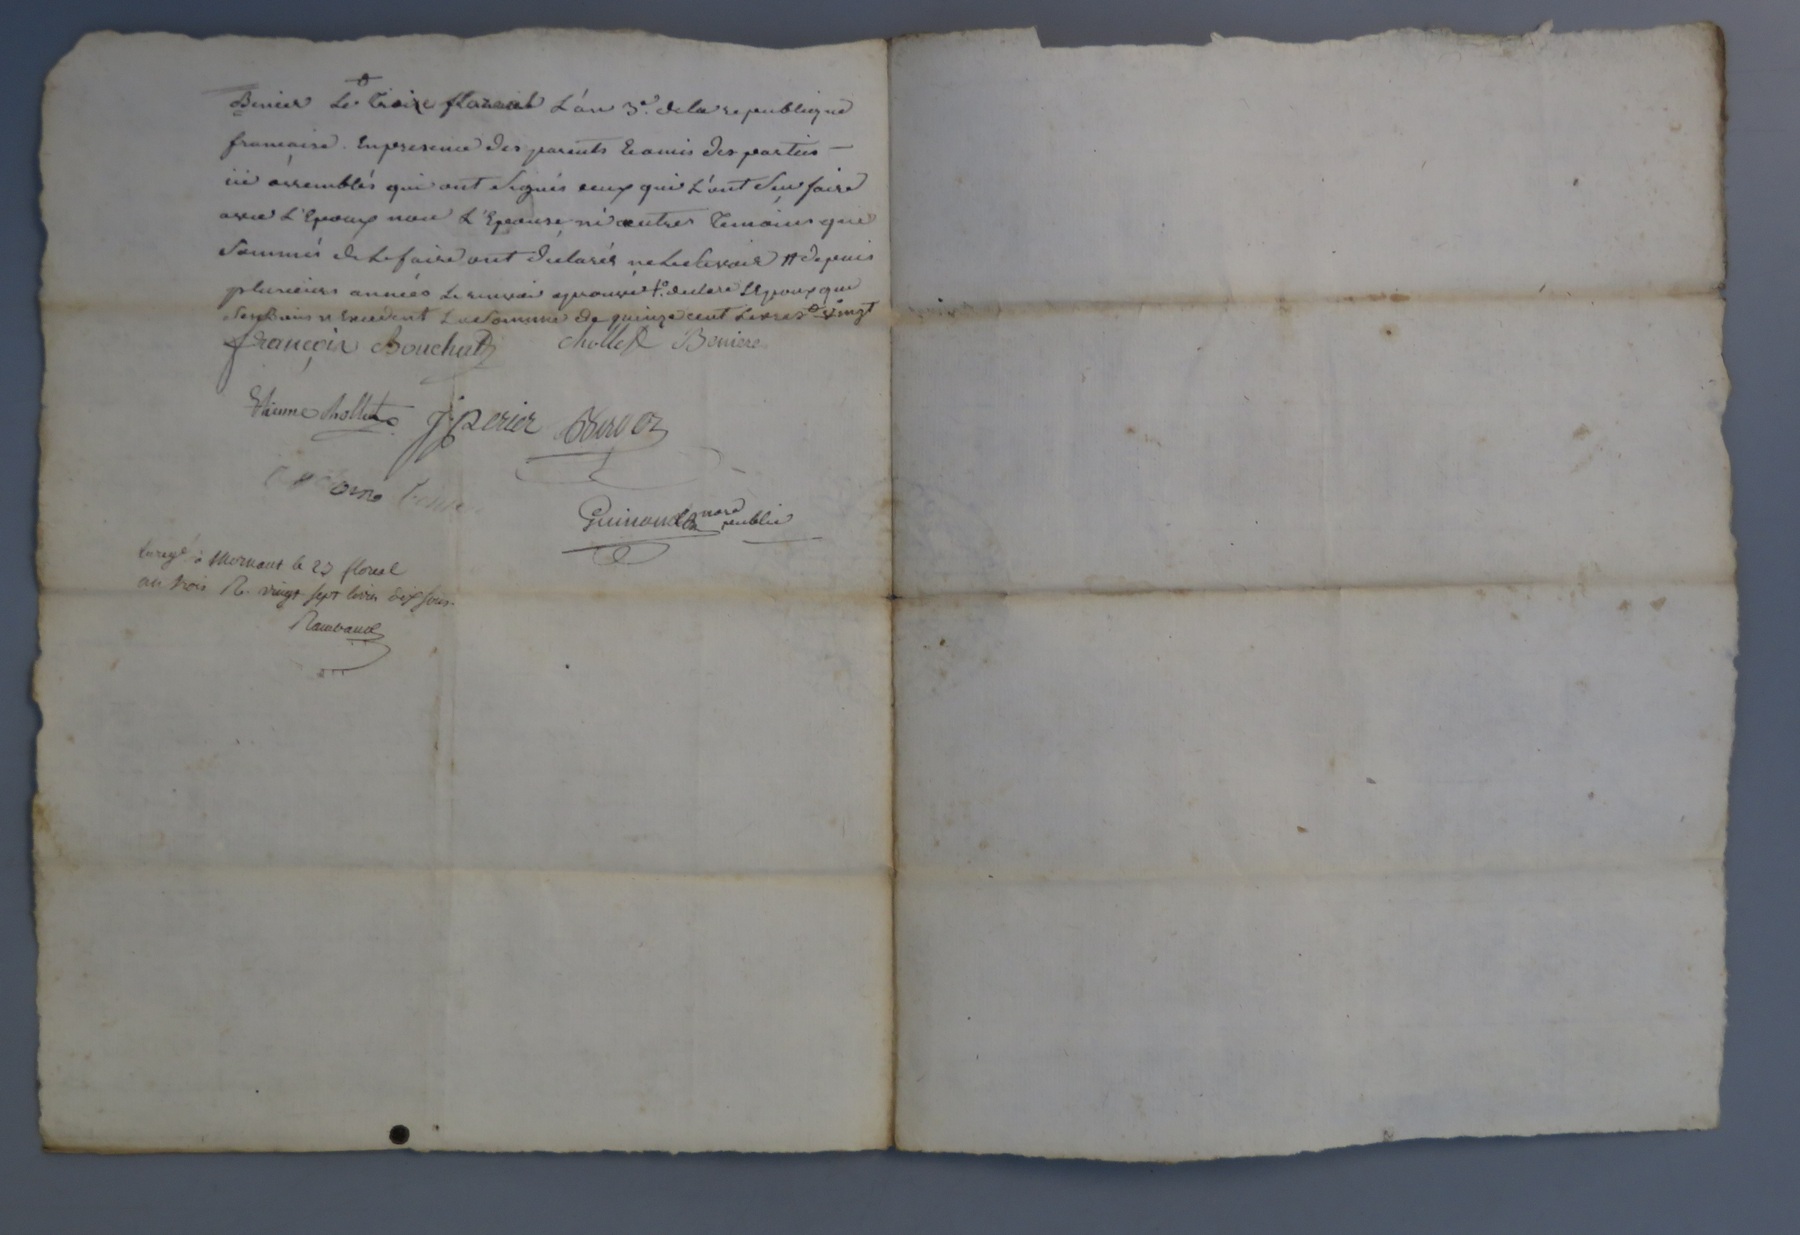 Benier Le Treize floreal L'an 3e. dela republique
francaise. Enpresence des parents Et amis des parties —
icï assemblés qui ont signés ceux qui L'ont sçu faire
avec L'Epoux non L'Epouse ni autres Temoins que
sommés de Le faire ont déclarés ne Le sçavoir # depuis
plusieurs années Le renvoi aprouvé declare L'Epoux que
ses Biens n'Excedent La somme de quinze cent Livres vingt
françois Bouchut chollet Boniere
Etienne chollet J. perier
Guinand nore public
Enregé. à Mornant le 23 floreal
an trois R. vingt sept livres dix sous.
Rambaud